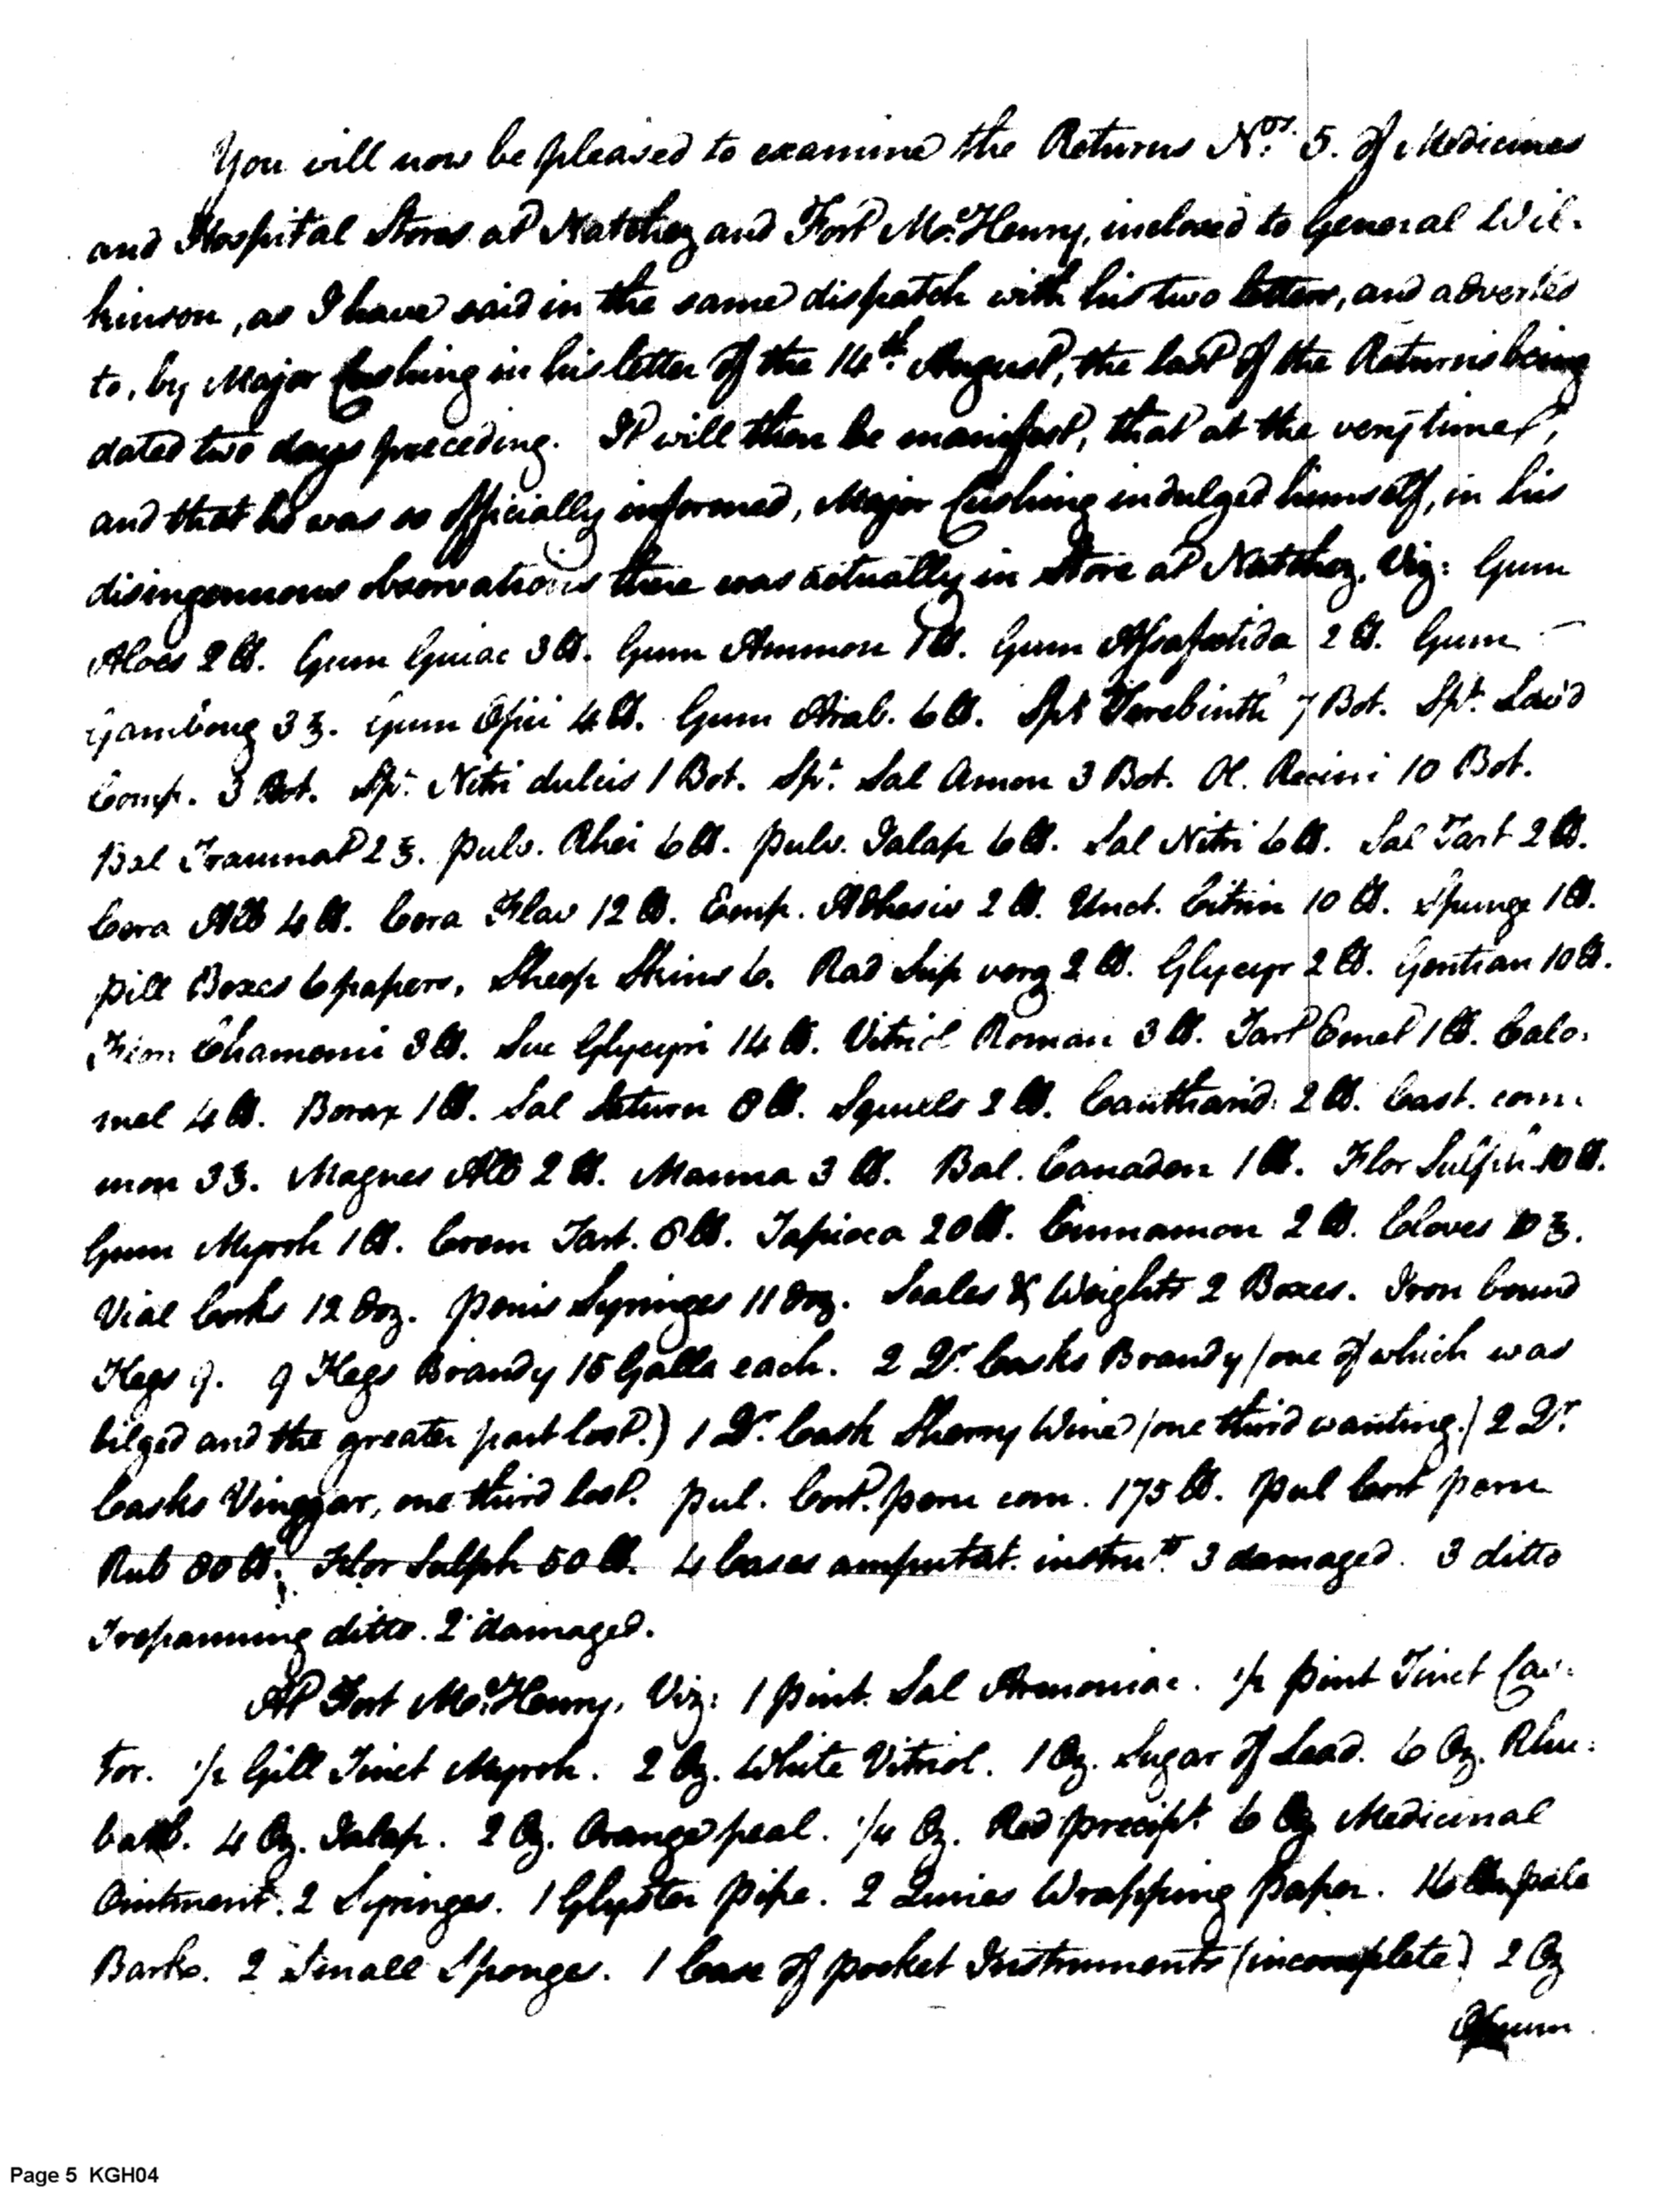 You will now be pleased to examine the Returns Nos. 5. of Medicines
and Hospital Stores at Natchez and Fort McHenry, inclosed to General Wil-
kinson, as I have said in the same dispatch with his two letters, and adverted
to, by Major Cushing in his letter of the 14th August, the last of the Returns being
dated two days preceding. It will then be manifest, that at the very time,
and that he was so officially informed, Major Cushing indulged himself, in his
disingenuous observations there was actually in store at Natchez, Viz: Gum
Aloes 2 lb. Gum Guiac 3 lb. Gum Ammon 1 lb. Gum Assafoetida 2 lb. Gum
Gambong 3 ℥. Gum Opii 4 lb. Gum Arab. 6 lb. Spt Terebinth 7 Bot. Spt. Lav'd
Comp. 3 Bot. Spt. Nitri dulcis 1 Bot. Spt. Sal Amon 3 Bot. Ol. Recini 10 Bot.
Bal Traumat 2 ℥. pulv. Rhei 6 lb. pulv. Jalap 6 lb. Sal Nitri 6 lb. Sal Tart 2 lb.
Cera Alb 4 lb. Cera Flav 12 lb. Emp. Adhesiv 2 lb. Unct. Citrin 10 lb. Spunge 1 lb.
pill Boxes 6 papers, Sheep Skins 6. Rad Serp verg 2 lb. Glycyr 2 lb. Gentian 10 lb.
Flor Chamomi 3 lb. Suc Glycyrri 14 lb. Vitriol Roman 3 lb. Tart Emet 1 lb. Calo-
mel 4 lb. Borax 1 lb. Sal Saturn 8 lb. Squills 2 lb. Cantharid: 2 lb. Cast. com-
mon 3 ℥. Magnes Alb 2 lb. Manna 3 lb. Bal. Canaden 1 lb. Flor Sulph 10 lb.
Gum Myrrh 1 lb. Crem Tart. 8 lb. Tapioca 20 lb. Cinnamon 2 lb. Cloves 10 ℥.
Vial Corks 12 doz. penis Syringes 11 doz. Scales & Weights 2 Boxes. Iron bound
Kegs 9. 9 Kegs Brandy 15 Galls each. 2 Qr. Casks Brandy (one of which was
bilged and the greater part lost.) 1 Qr. Cask Sherry Wine (one third wanting.) 2 Qr.
Casks Vineggar, one third lost. pul. Cort. peru com. 175 lb. pul Cort peru
Rub 80 lb. Flor Sulph 50 lb. 4 Cases amputat. instruts. 3 damaged. 3 ditto
Trepanning ditto. 2 damaged.
At Fort McHenry, Viz: 1 pint. Sal Armoniac. ½ pint Tinct Cas-
tor. ½ Gill Tinct Myrrh. 2 Oz. White Vitriol. 1 Oz. Sugar of Lead. 6 Oz. Rhu-
barb. 4 Oz. Jalap. 2 Oz. Orange peal. ¼ Oz. Red precipt 6 Oz Medicinal
Ointment. 2 Syringes. 1 Glyster pipe. 2 Quires Wrapping paper. pale
Bark. 2 Small Sponges. 1 Case of pocket Instruments (incomplete) 2 Oz
Opium
Page 5 KGH04